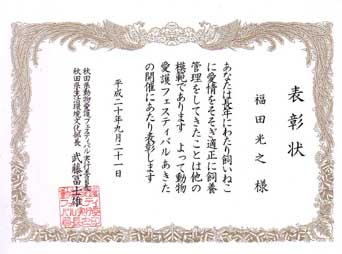 表彰状
福田光之 様
あなたは長年にわたり飼いねこ
に愛情をそそぎ適正に飼養
管理をしてきたことは他の
模範であります よって動物
愛護フェスティバル あきた
の開催にあたり表彰します
平成二十年九月二十一日
秋田県動物愛護フェスティバル実行委員長
秋田県生活環境文化部長 武藤冨士雄